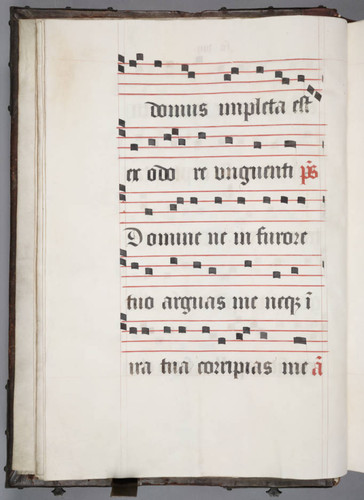 domus impleta est
ex odo re vnguenti p̄s
Domine ne in furore
tuo arguas me neqꝫ ī
ira tua corripias me ā